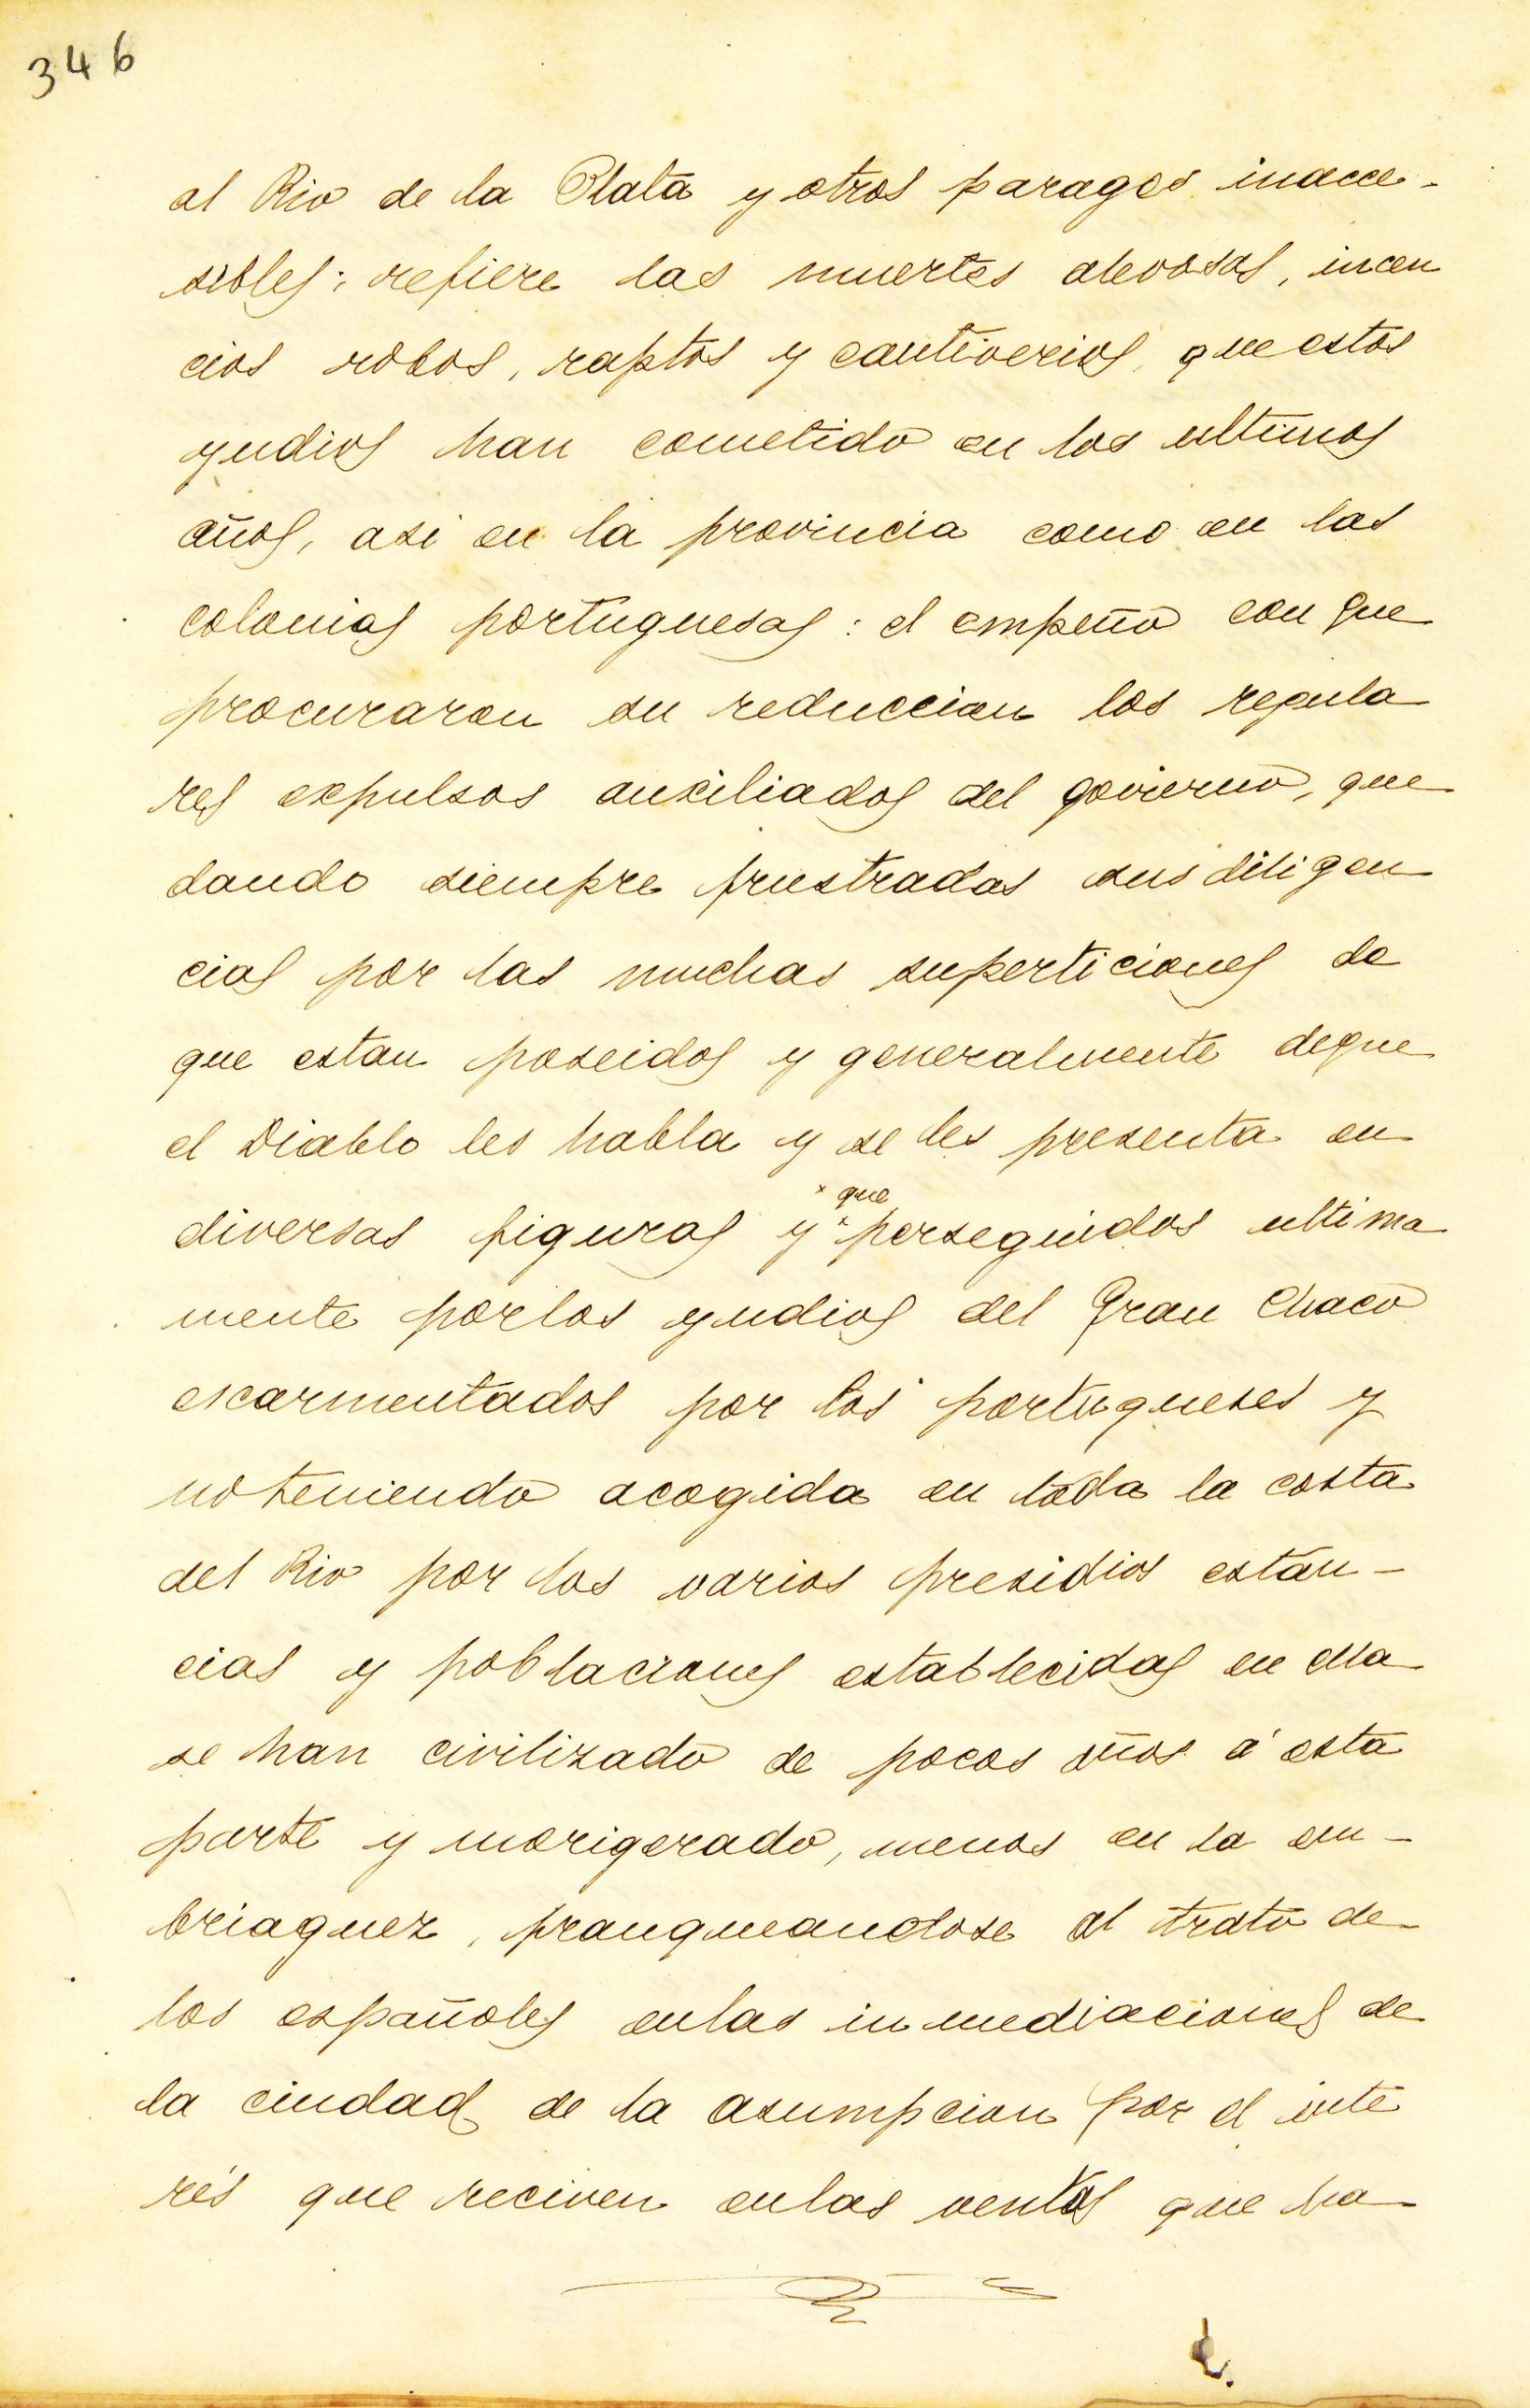 346
al Rio de la Plata y otros parages inacce-
sibles; refiere las muertes alevosas, incen
cios robos, raptos y cautiverios, que estos
yndios han cometido en los ultimos
años, asi en la provincia como en las
colonias portuguesas: el empeño con que
procuraron su reduccion los regula
res expulsos auxiliados del govierno, que
dando siempre frustradas sus diligen
cias por las muchas superticiones de
que estan poseidos y generalmente deque
el Diablo les habla y se les presenta en
x que
diversas figuras y x perseguidos ultima
mente porlos yndios del Gran Chaco
escarmentados por los portugueses y
no teniendo acogida en toda la costa
del Rio por los varios presidios estan-
cias y poblaciones establecidas en ella
se han civilizado de pocos años á esta
parte y morigerado, menos en la em-
briaguez, franqueandose al trato de
los españoles enlas inmediaciones de
la ciudad de la asumpcion por el inte
rés que reciven enlas ventas que ha